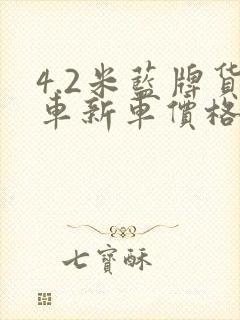 4.2米藍牌貨
車新車價格
七寶酥